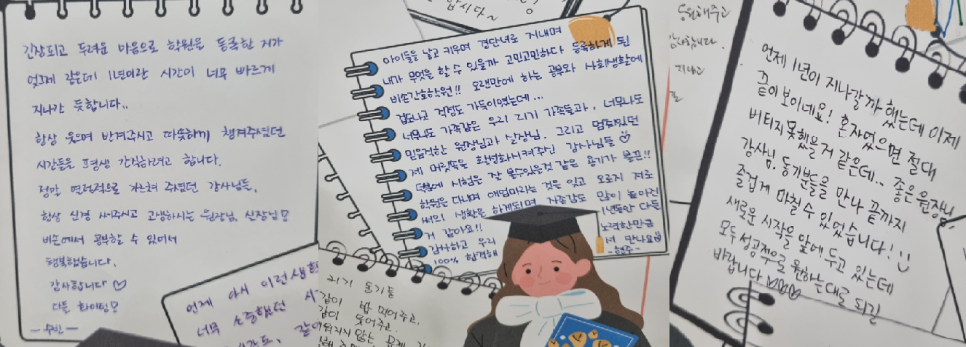 긴장되고 두려운 마음으로 학원을 등록한 게가
엊그제 같은데 1년이란 시간이 너무 빠르게
지나간 듯합니다..
항상 웃으며 반겨주시고 따뜻하게 챙겨주시던
시간들을 평생 간직하려고 합니다.
정말 열정적으로 가르쳐 주셨던 강사님들,
항상 신경 써주시고 고생하시는 원장님, 실장님
비손에서 공부할 수 있어서
행복했습니다.
감사합니다 ♡
다들 화이팅♡
합시다~
아이들을 낳고 키우며 경단녀로 지내며
내가 무엇을 할 수 있을까 고민고민하다 등록하게 된
비손간호학원!! 오랜만에 하는 공부와 사회생활에
겁나고 걱정도 가득이였는데...
너무나도 가족같은 우리 21기 가족들과, 너무나도
믿음직한 원장님과 실장님, 그리고 멈춰있던
제 머릿속을 활성화시켜주신 강사님들
덕분에 시험은 잘 볼수있을것 같은 용기가 불끈!!
학원을 다니며 애엄마라는 것을 잊고 오로지 저로
생활을 하게되며 자존감도 많이 돌아온
거 같아요!!
1년동안 다들
감사하고 우리
노력한만큼
100% 합격해
서 만나요
언제 다시 이런 생
너무 소중했던
동기들
같이 밥 먹어주고,
같이 웃어주고
등원해주고
감사합니다.
언제 1년이 지나갈까 했는데 이제
끝이 보이네요! 혼자였으면 절대
버티지 못했을거 같은데... 좋은 원장님,
강사님, 동기분들을 만나 끝까지
즐겁게 마칠 수 있었습니다!
새로운 시작을 앞에 두고 있는데
모두 성공적으로 원하는대로 되길
바랍니다 ♡♡♡